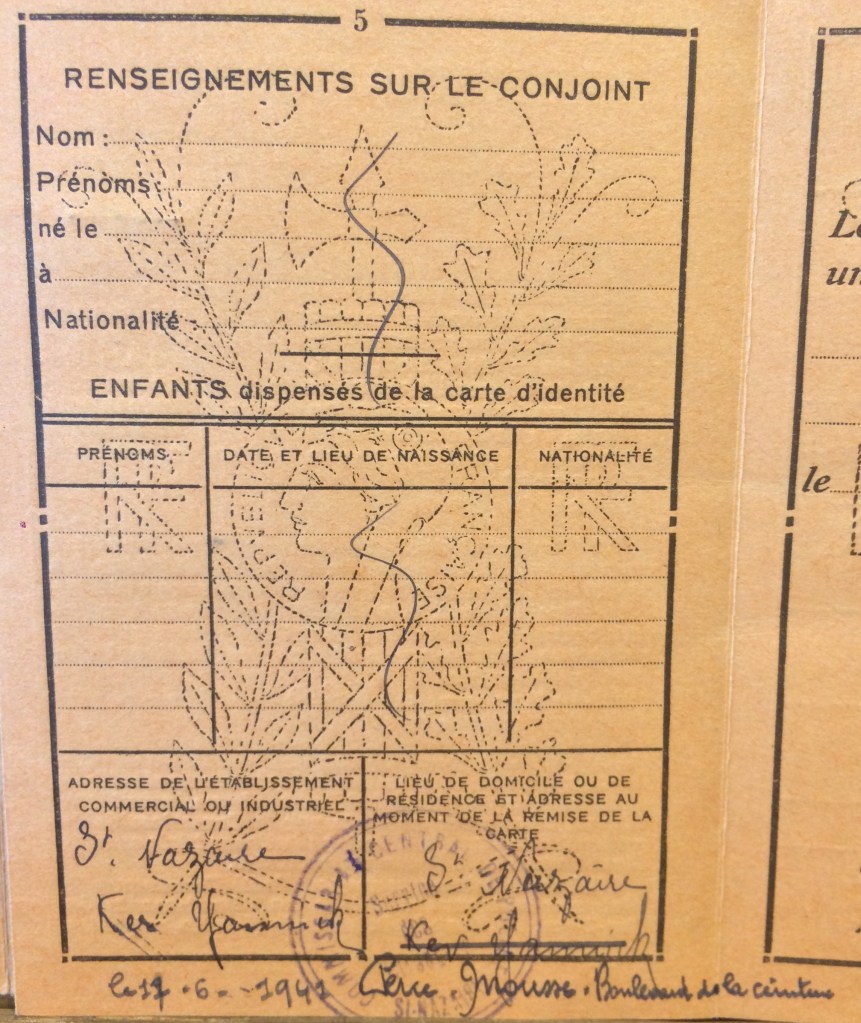 5
RENSEIGNEMENTS SUR LE CONJOINT
Nom :
Prénoms :
né le
à
Nationalité :
ENFANTS dispensés de la carte d'identité
PRÉNOMS
DATE ET LIEU DE NAISSANCE
NATIONALITÉ
RF
RF
ADRESSE DE L'ÉTABLISSEMENT
COMMERCIAL OU INDUSTRIEL
St. Nazaire
Ker Yannick
LIEU DE DOMICILE OU DE
RÉSIDENCE ET ADRESSE AU
MOMENT DE LA REMISE DE LA
CARTE
St Nazaire
Ker Yannick
le 17-6-1941 Perce-Mousse. Boulevard de la ceinture
CENTRAL
le